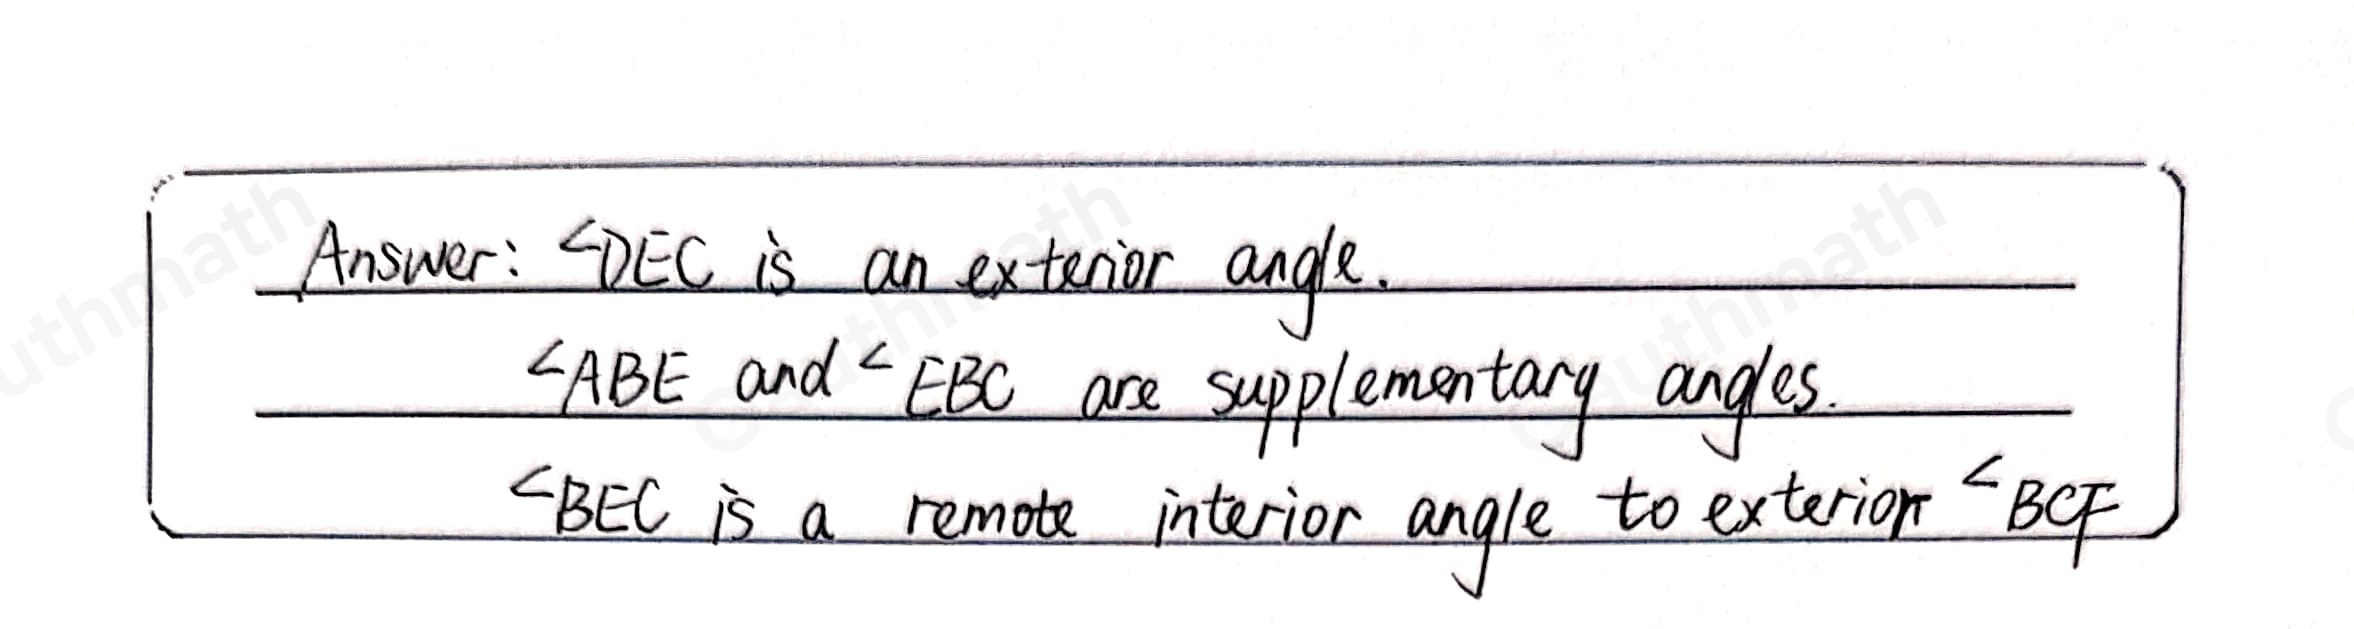 Answer: ∠DEC is an exterior angle.
∠ABE and ∠EBC are supplementary angles.
∠BEC is a remote interior angle to exterior ∠BCF